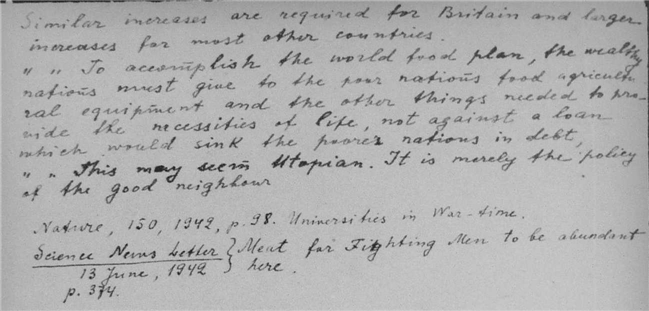 Similar increases are required for Britain and larger
increases for most other countries.
" " To accomplish the world food plan, the wealthy
nations must give to the poor nations food agricultu-
ral equipment and the other things needed to pro-
vide the necessities of life, not against a loan
which would sink the poorer nations in debt,
" " This may seem Utopian. It is merely the policy
of the good neighbour
Nature, 150, 1942, p. 98. Universities in War-time.
Science News Letter } Meat for Fighting Men to be abundant
13 June, 1942 } here.
p. 374.